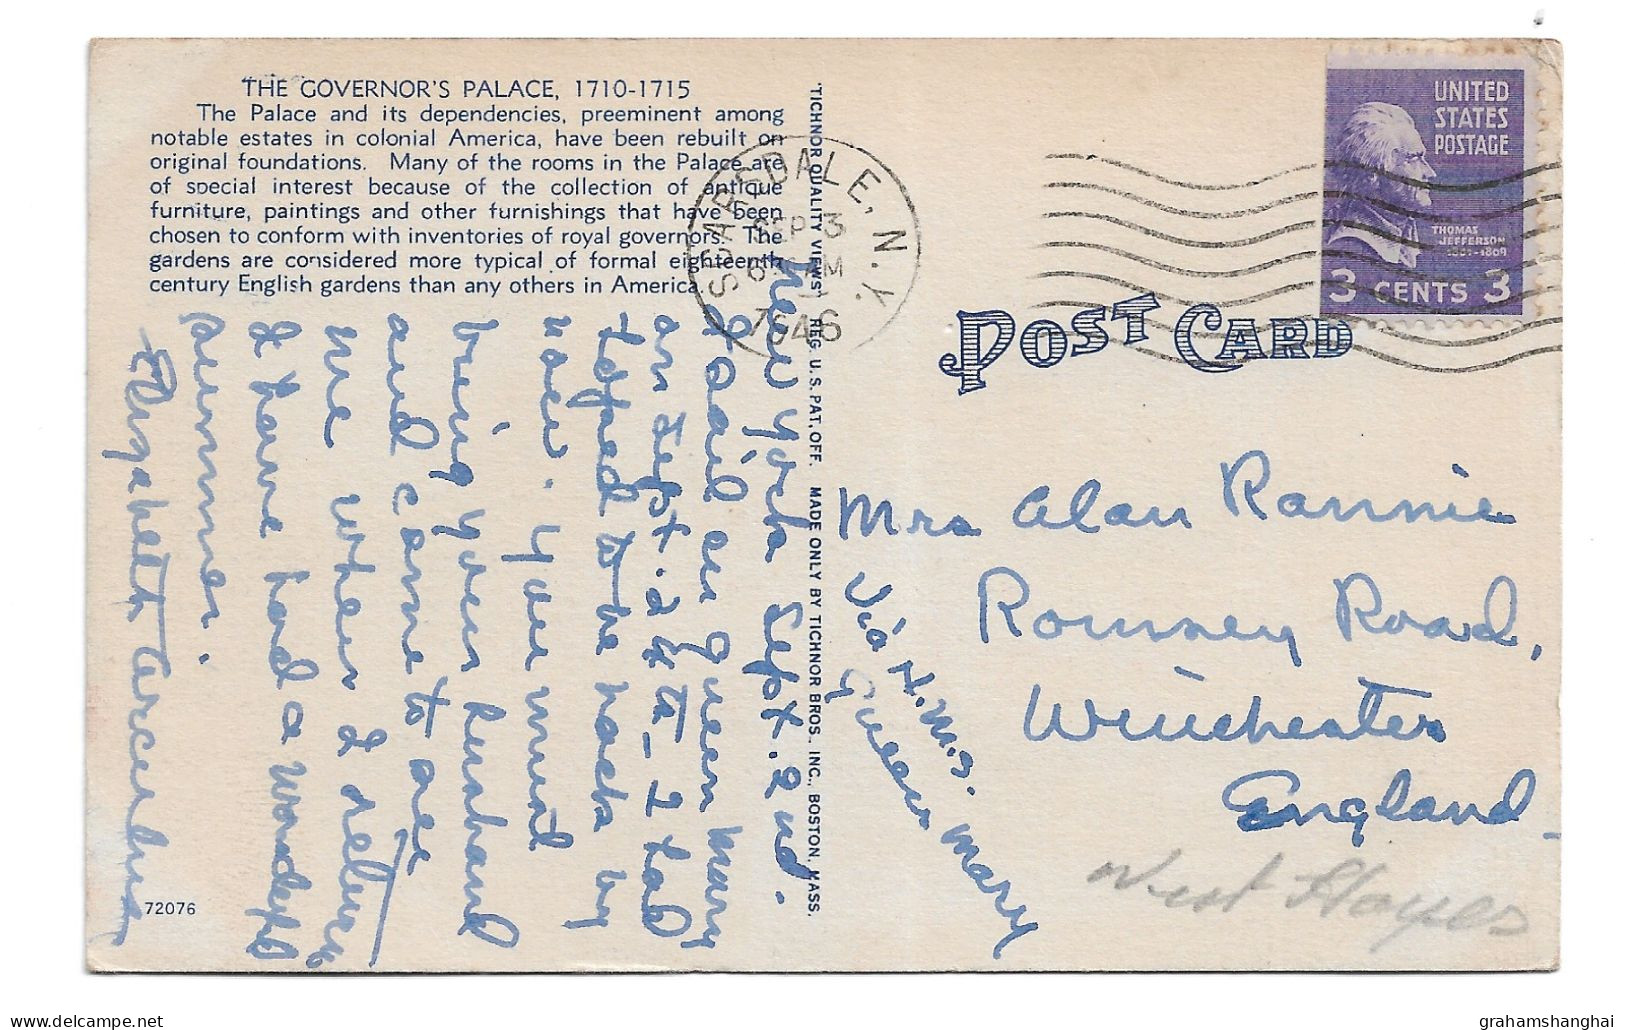 THE GOVERNOR'S PALACE, 1710-1715
The Palace and its dependencies, preeminent among
notable estates in colonial America, have been rebuilt on
original foundations. Many of the rooms in the Palace are
of special interest because of the collection of antique
furniture, paintings and other furnishings that have been
chosen to conform with inventories of royal governors. The
gardens are considered more typical of formal eighteenth
century English gardens than any others in America.
New York Sept. 2nd.
I sail on Queen Mary
on Sept. 24th - I had
to be back by
now. You must
bring your husband
and come to see
me when I return
I have had a wonderful
summer.
Elizabeth
72076
"TICHNOR QUALITY VIEWS" REG. U.S. PAT. OFF. MADE ONLY BY TICHNOR BROS., INC., BOSTON, MASS.
SCARSDALE, N.Y.
SEP 3
AM
1946
UNITED
STATES
POSTAGE
THOMAS
JEFFERSON
1801-1809
3 CENTS 3
POST CARD
Mrs Alan Rannie
Romsey Road,
Winchester
England
Via H.M.S.
Queen Mary
West Hayes
grahamshanghai